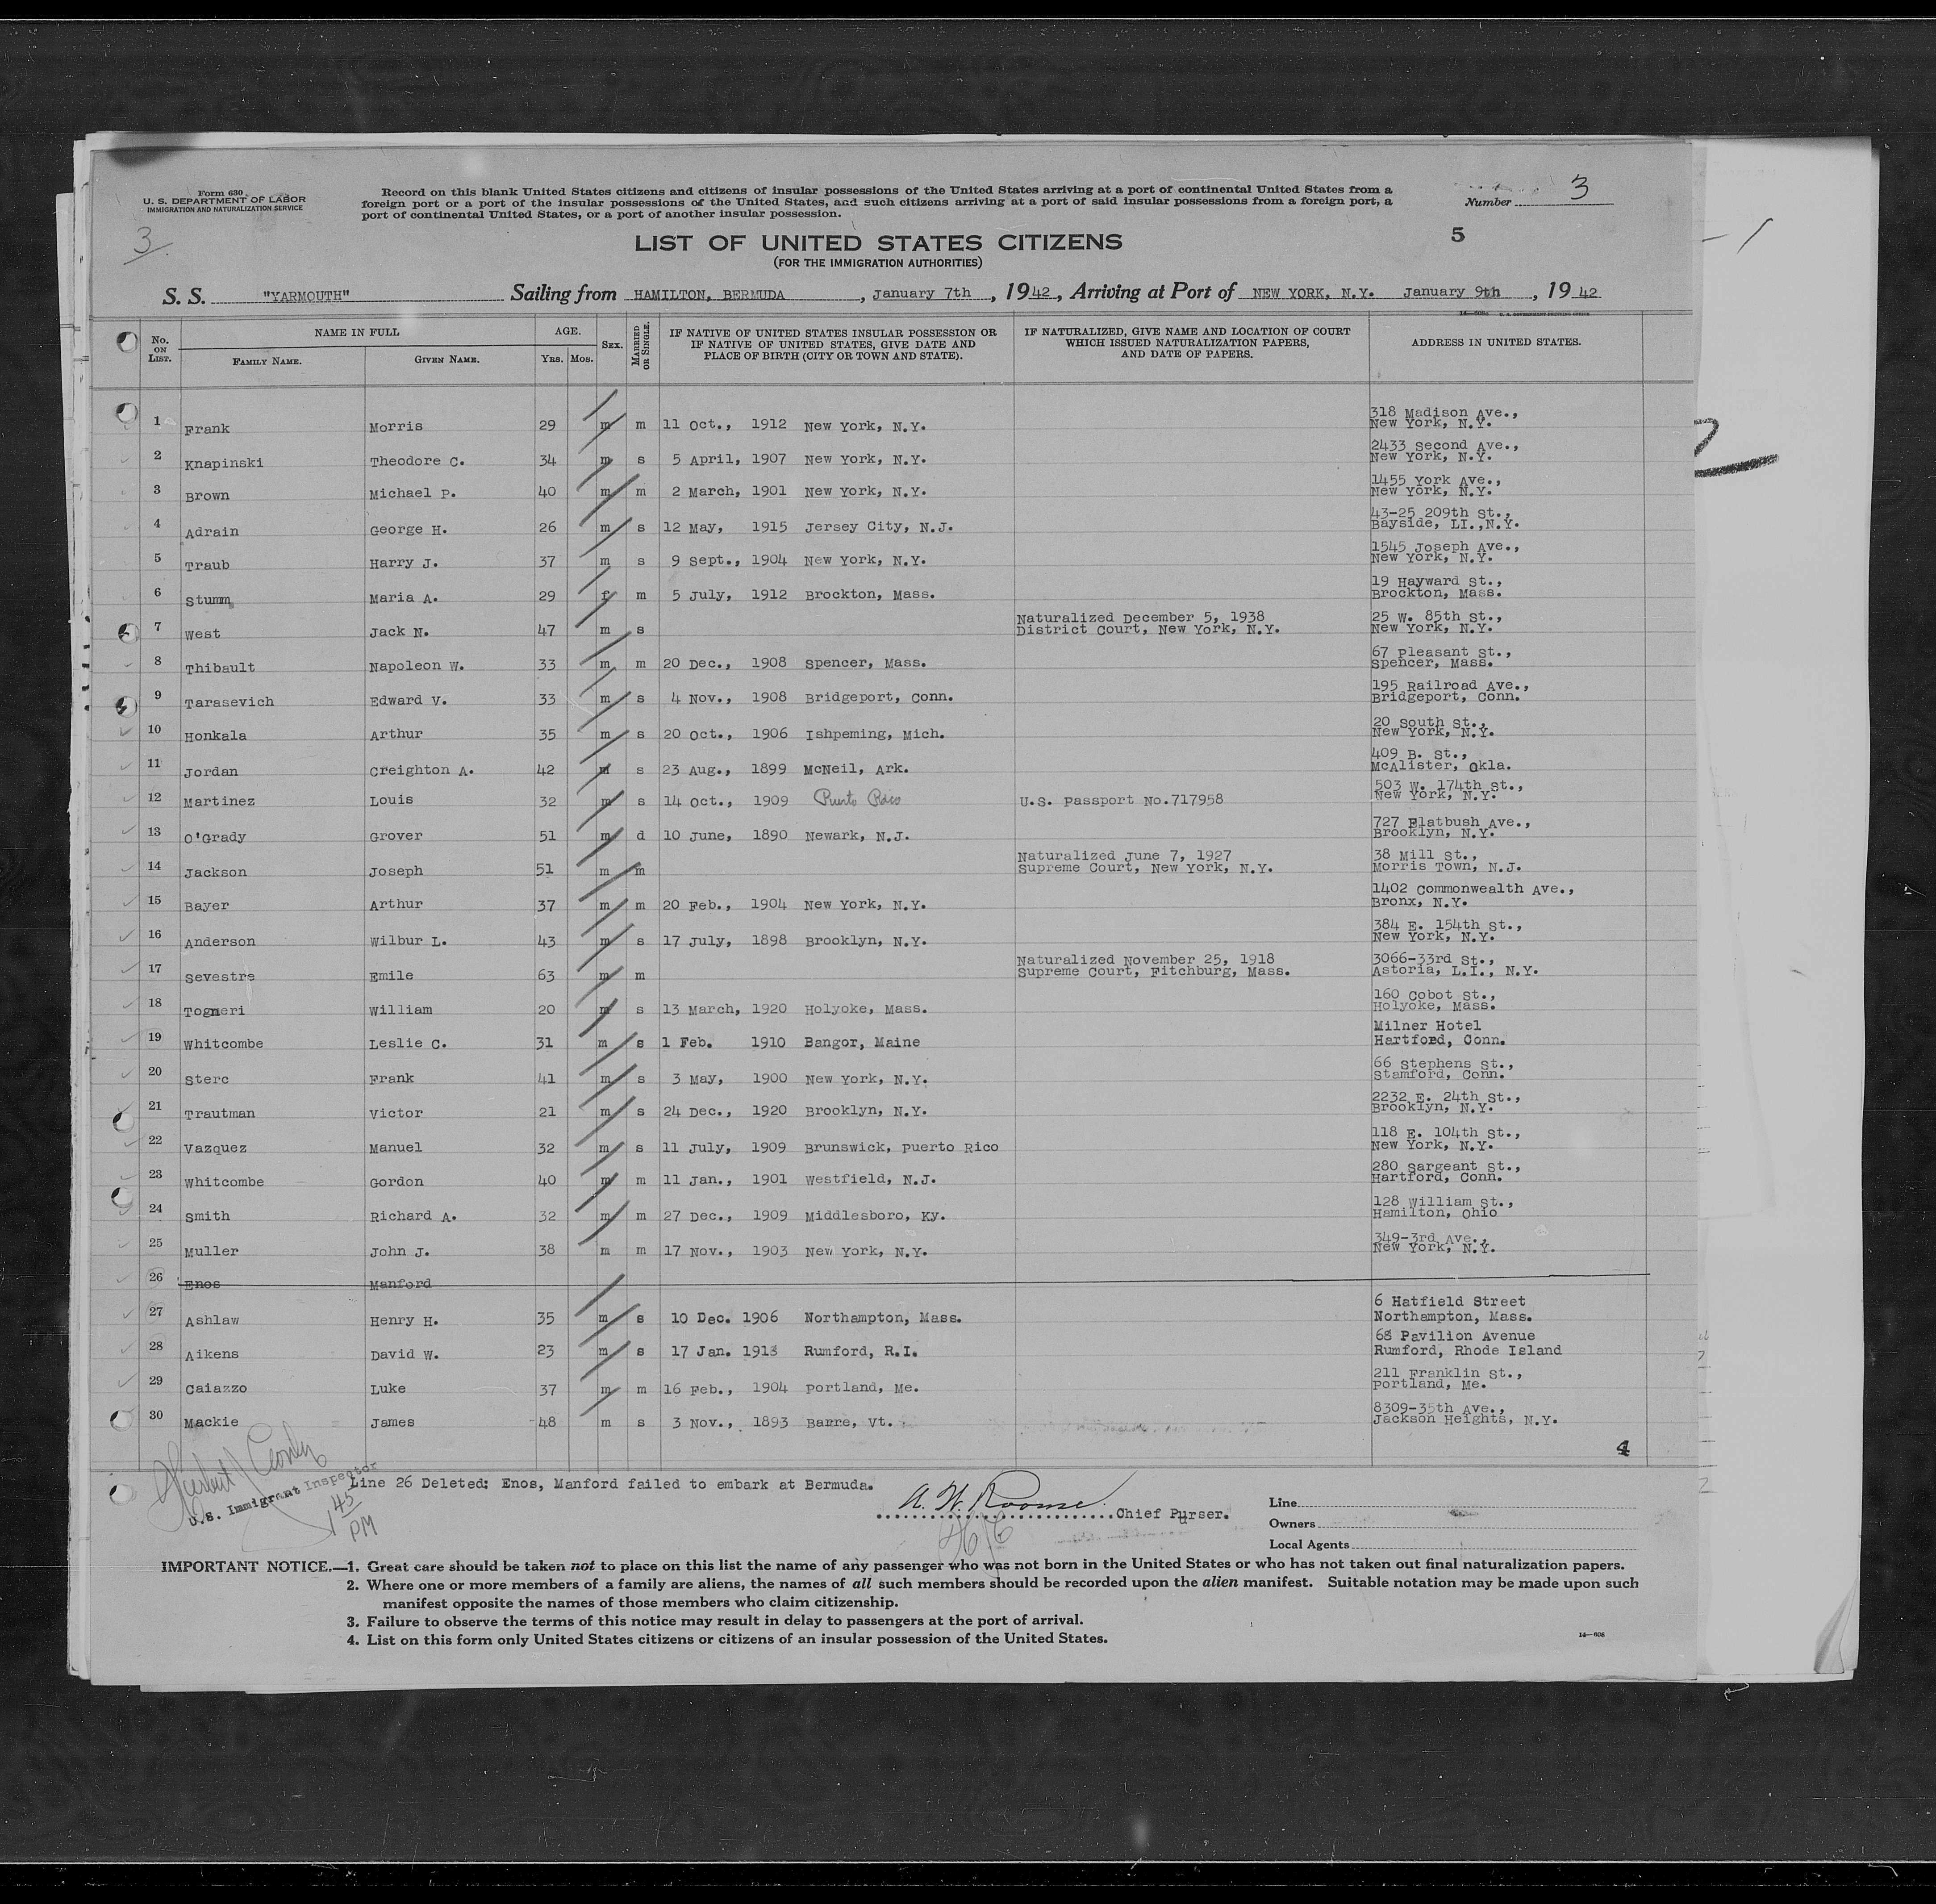 Form 630
U. S. DEPARTMENT OF LABOR
IMMIGRATION AND NATURALIZATION SERVICE
Record on this blank United States citizens and citizens of insular possessions of the United States arriving at a port of continental United States from a
foreign port or a port of the insular possessions of the United States, and such citizens arriving at a port of said insular possessions from a foreign port, a
port of continental United States, or a port of another insular possession.
Number 3
3
5
LIST OF UNITED STATES CITIZENS
(FOR THE IMMIGRATION AUTHORITIES)
S. S. "YARMOUTH" Sailing from HAMILTON, BERMUDA, January 7th, 1942, Arriving at Port of NEW YORK, N.Y. January 9th, 1942
No. ON LIST. NAME IN FULL FAMILY NAME. GIVEN NAME. AGE. YRS. MOS. SEX. MARRIED OR SINGLE. IF NATIVE OF UNITED STATES INSULAR POSSESSION OR IF NATIVE OF UNITED STATES, GIVE DATE AND PLACE OF BIRTH (CITY OR TOWN AND STATE). IF NATURALIZED, GIVE NAME AND LOCATION OF COURT WHICH ISSUED NATURALIZATION PAPERS, AND DATE OF PAPERS. ADDRESS IN UNITED STATES.
1 Frank Morris 29 m m 11 Oct., 1912 New York, N.Y. 318 Madison Ave., New York, N.Y.
2 Knapinski Theodore C. 34 m s 5 April, 1907 New York, N.Y. 2433 Second Ave., New York, N.Y.
3 Brown Michael P. 40 m m 2 March, 1901 New York, N.Y. 1455 York Ave., New York, N.Y.
4 Adrain George H. 26 m s 12 May, 1915 Jersey City, N.J. 43-25 209th St., Bayside, LI.,N.Y.
5 Traub Harry J. 37 m s 9 Sept., 1904 New York, N.Y. 1545 Joseph Ave., New York, N.Y.
6 Stumm Maria A. 29 f m 5 July, 1912 Brockton, Mass. 19 Hayward St., Brockton, Mass.
7 West Jack N. 47 m s Naturalized December 5, 1938 District Court, New York, N.Y. 25 W. 85th St., New York, N.Y.
8 Thibault Napoleon W. 33 m m 20 Dec., 1908 Spencer, Mass. 67 Pleasant St., Spencer, Mass.
9 Tarasevich Edward V. 33 m s 4 Nov., 1908 Bridgeport, Conn. 195 Railroad Ave., Bridgeport, Conn.
10 Honkala Arthur 35 m s 20 Oct., 1906 Ishpeming, Mich. 20 South St., New York, N.Y.
11 Jordan Creighton A. 42 m s 23 Aug., 1899 McNeil, Ark. 409 B. St., McAlister, Okla.
12 Martinez Louis 32 m s 14 Oct., 1909 Puerto Rico U.S. Passport No.717958 503 W. 174th St., New York, N.Y.
13 O'Grady Grover 51 m d 10 June, 1890 Newark, N.J. 727 Flatbush Ave., Brooklyn, N.Y.
14 Jackson Joseph 51 m m Naturalized June 7, 1927 Supreme Court, New York, N.Y. 38 Mill St., Morris Town, N.J.
15 Bayer Arthur 37 m m 20 Feb., 1904 New York, N.Y. 1402 Commonwealth Ave., Bronx, N.Y.
16 Anderson Wilbur L. 43 m s 17 July, 1898 Brooklyn, N.Y. 384 E. 154th St., New York, N.Y.
17 Sevestre Emile 63 m m Naturalized November 25, 1918 Supreme Court, Fitchburg, Mass. 3066-33rd St., Astoria, L.I., N.Y.
18 Togneri William 20 m s 13 March, 1920 Holyoke, Mass. 160 Cobot St., Holyoke, Mass.
19 Whitcombe Leslie C. 31 m s 1 Feb. 1910 Bangor, Maine Milner Hotel Hartford, Conn.
20 Sterc Frank 41 m s 3 May, 1900 New York, N.Y. 66 Stephens St., Stamford, Conn.
21 Trautman Victor 21 m s 24 Dec., 1920 Brooklyn, N.Y. 2232 E. 24th St., Brooklyn, N.Y.
22 Vazquez Manuel 32 m s 11 July, 1909 Brunswick, Puerto Rico 118 E. 104th St., New York, N.Y.
23 Whitcombe Gordon 40 m m 11 Jan., 1901 Westfield, N.J. 280 Sargeant St., Hartford, Conn.
24 Smith Richard A. 32 m m 27 Dec., 1909 Middlesboro, Ky. 128 William St., Hamilton, Ohio
25 Muller John J. 38 m m 17 Nov., 1903 New York, N.Y. 349-3rd Ave., New York, N.Y.
26 Enos Manford
27 Ashlaw Henry H. 35 m s 10 Dec. 1906 Northampton, Mass. 6 Hatfield Street Northampton, Mass.
28 Aikens David W. 23 m s 17 Jan. 1918 Rumford, R.I. 68 Pavilion Avenue Rumford, Rhode Island
29 Caiazzo Luke 37 m m 16 Feb., 1904 Portland, Me. 211 Franklin St., Portland, Me.
30 Mackie James 48 m s 3 Nov., 1893 Barre, Vt. 8309-35th Ave., Jackson Heights, N.Y.
4
U.S. Immigrant Inspector
1 45 PM
Line 26 Deleted: Enos, Manford failed to embark at Bermuda.
Chief Purser.
Line
Owners
Local Agents
IMPORTANT NOTICE.—1. Great care should be taken not to place on this list the name of any passenger who was not born in the United States or who has not taken out final naturalization papers.
2. Where one or more members of a family are aliens, the names of all such members should be recorded upon the alien manifest. Suitable notation may be made upon such
manifest opposite the names of those members who claim citizenship.
3. Failure to observe the terms of this notice may result in delay to passengers at the port of arrival.
4. List on this form only United States citizens or citizens of an insular possession of the United States.
14—608